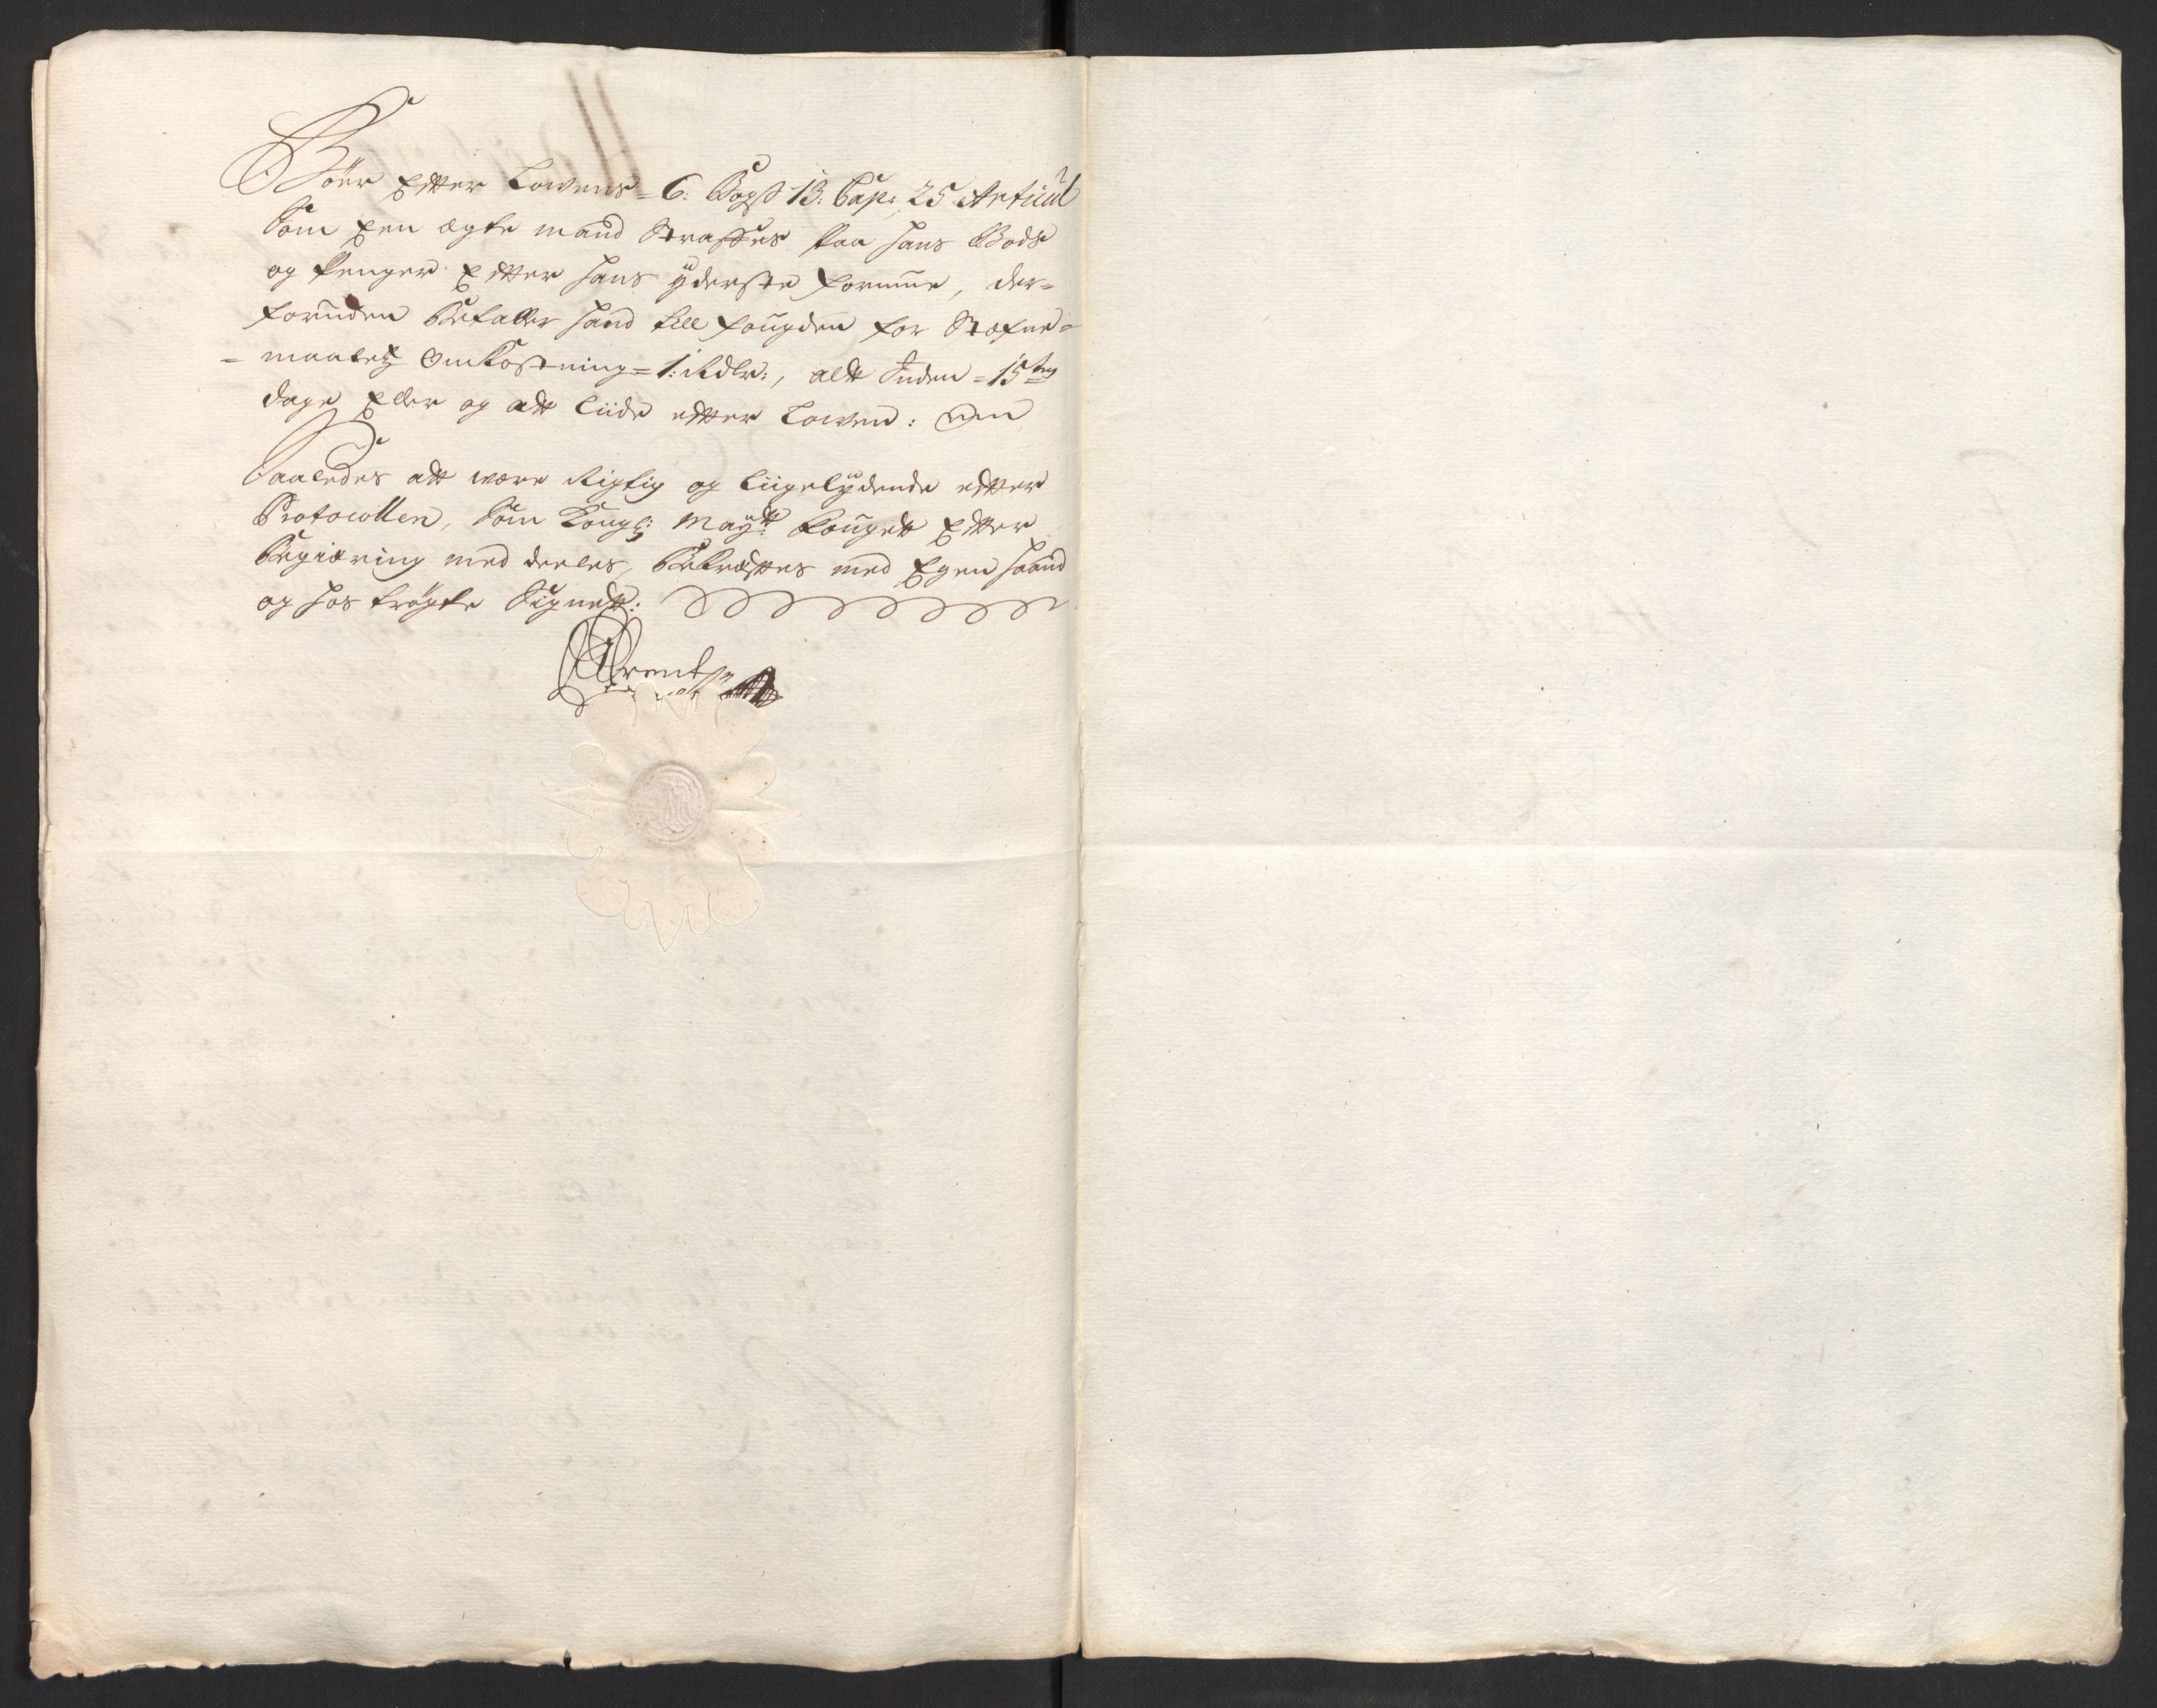 Böer Efter Lowens 6: Bogs 13: Cap: 25 Articul
Som Een ægte mand Straffes paa hans Bods
og Penger Efter hans ÿderste formue, der-
foruden Betaller hand till fougden for Stefne-
= maaletz Omkostning = 1: Rdlr:, alt Inden = 15ten
dage Eller og att liide efter Lowen:
Saaledes att were Rigtig og liigelÿdende efter
Protocollen, Som Kongl: Maÿtt fougett Efter
Begiæring med deeles, Bekreftes med Egen haand
og hos trögte Signett: